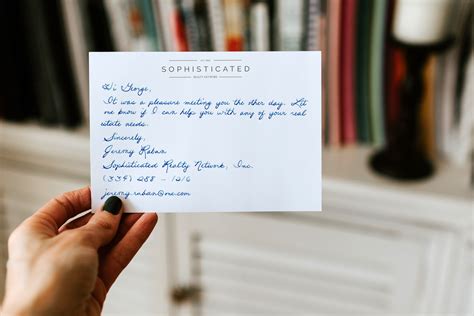 SOPHISTICATED
REALTY NETWORK
Hi George,
It was a pleasure meeting you the other day. Let
me know if I can help you with any of your real
estate needs.
Sincerely,
Jeremy Ruban
Sophisticated Realty Network, Inc.
(334) 288 - 1216
jeremy.ruban@me.com